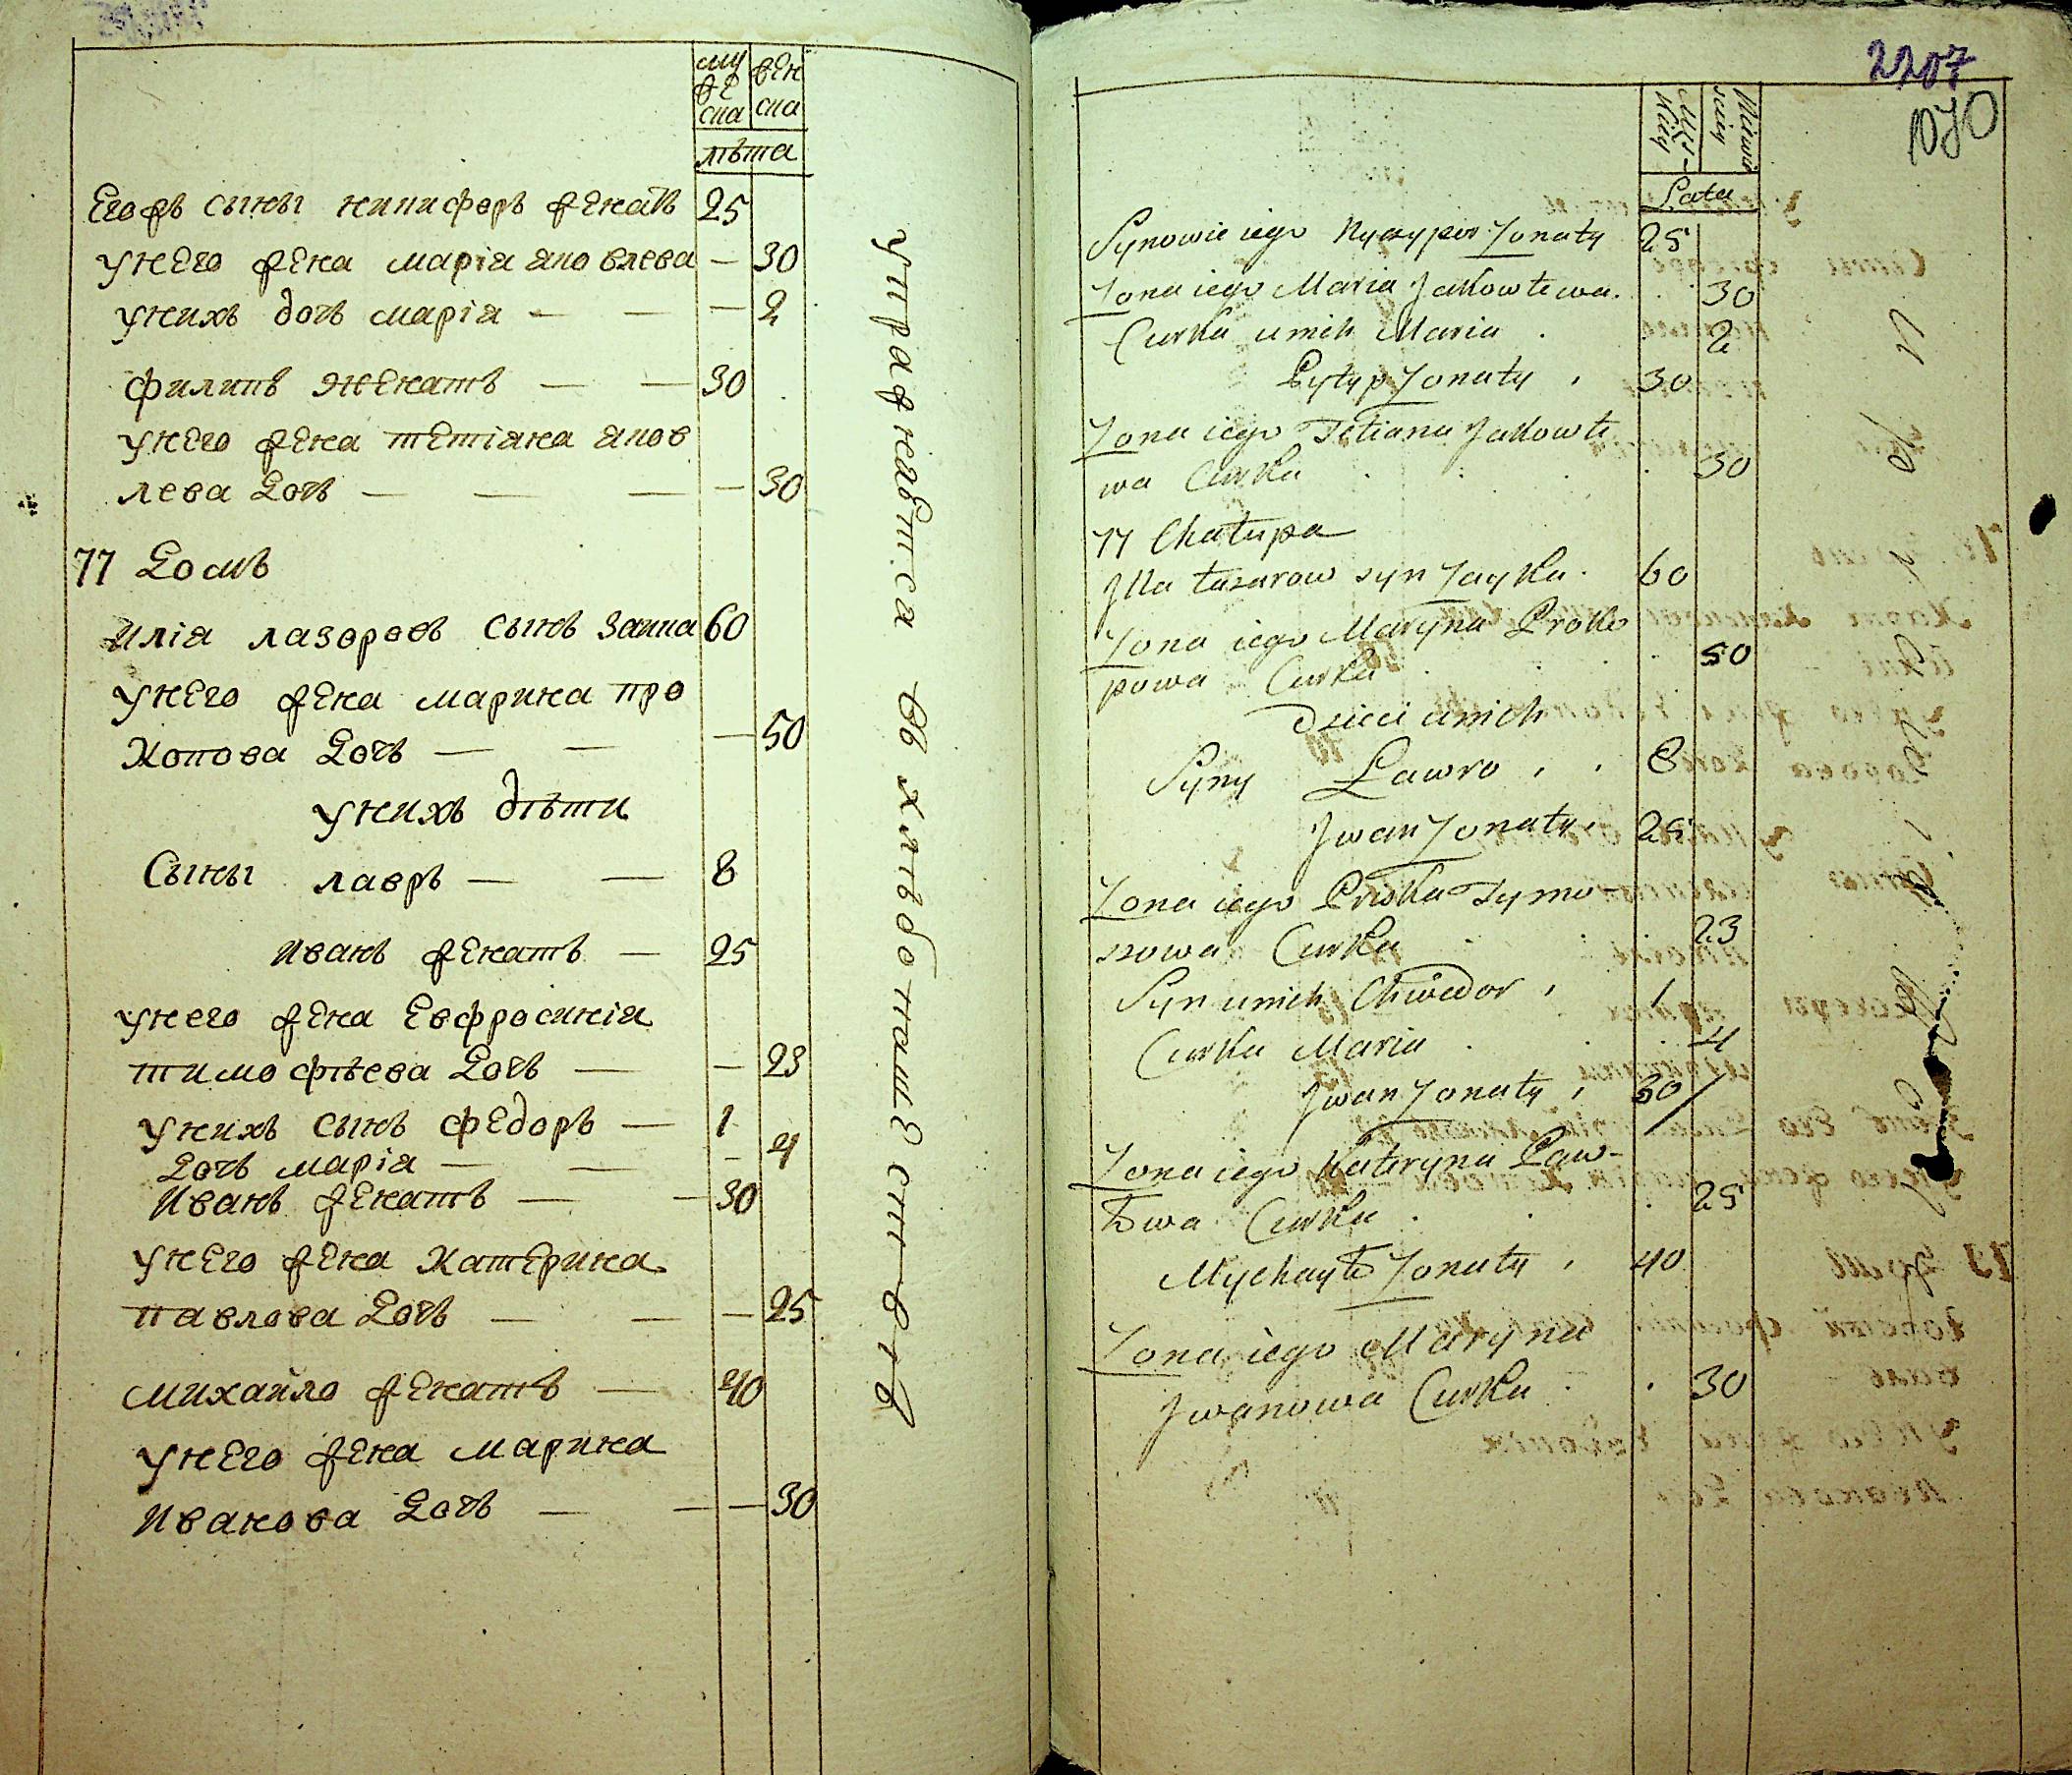 муже
ска
жен
ска
лѣта
Егоръ сыны никифоръ женатъ 25
у него жена марія яковлева — 30
у нихъ дочь марія — — — 2
филипъ женатъ — — 30
у него жена тетіяна яков
лева дочь — — — — 30
77 домъ
Илія лазоровъ сынъ заика 60
у него жена марина про
копова дочь — — — 50
у нихъ дѣти
Сыны лавръ — — 8
Иванъ женатъ — 25
у него жена Евфросинія
тимофѣева дочь — — 23
у нихъ сынъ федоръ — 1
дочь марія — — — 4
Иванъ женатъ — — 30
у него жена Катерина
павлова дочь — — — 25
михайло женатъ — 40
у него жена марина
Иванова дочь — — — 30
упражнаѣтса въ хлѣбопашествѣ
2207
1070
Męs-
kiey
skiey
Lata
Synowie iego Nyczypor Żonaty 25
Żona iego Maria Jakowlewa . . 30
Curka u nich Maria . . 2
Pylyp Żonaty . 30
Żona iego Tetiana Jakowle
wa Curka . . . . 30
77 Chałupa
Illa Łazarow syn Zayka . 60
Żona iego Maryna Proko
powa Curka . . . 50
Dzieci u nich
Syny Lawro . . 8
Jwan Żonaty . 25
Żona iego Pryska Tymo-
szowa Curka . . . 23
Syn u nich Chwedor . 1
Curka Maria . . . 4
Jwan Żonaty . 30
Żona iego Kateryna Paw-
łowa Curka . . . 25
Mychayło Żonaty . 40
Żona iego Maryna
Jwanowa Curka . . 30